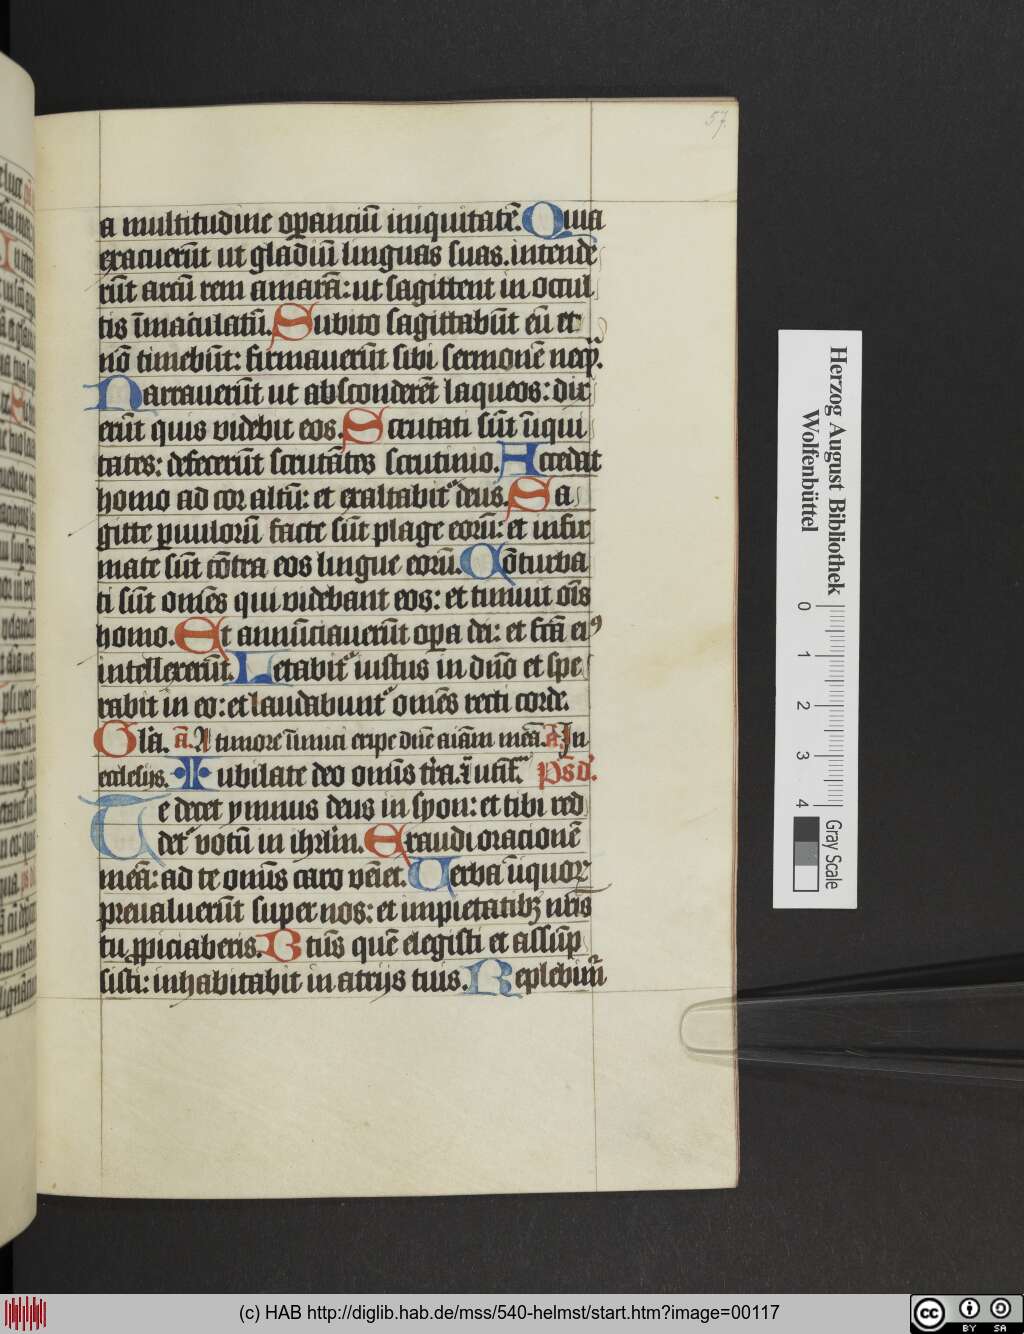 57.
a multitudine oꝑanciū iniquitatē. Quia
exacuerūt ut gladiū linguas suas. intende
rūt arcū rem amarā: ut sagittent in occul
tis īmaculatū. Subito sagittabūt eū et
nō timebūt: firmauerūt sibi sermonē neqͣ.
Narrauerūt ut absconderēt laqueos: dix
erūt quis videbit eos. Scrutati sūt īiqui
tates: defecerūt scrutātes scrutinio. Accedat
homo ad cor altū: et exaltabitᷣ deus. Sa
gitte ꝑuulorū facte sūt plage eorū: et infir
mate sūt cōtra eos lingue eorū. Cōturba
ti sūt om̄es qui videbant eos: et timuit om̄is
homo. Et annūciauerūt oꝑa dei: et fc̄a eiꝰ
intellexerūt. Letabitᷣ iustus in dn̄o et spe
rabit in eo: et laudabuntᷣ om̄es recti corde.
Gl̄a. a͞. A timore īimici eripe dn̄e aīam meā. a͞. In
ecclesijs. Iubilate deo om̄is t̄ra. ps̄ d͞d.
Te decet ymnus deus in syon: et tibi red
detᷣ votū in ihrl̄m. Exaudi oracionē
meā: ad te om̄is caro vēiet. Verba īiquoꝝ
preualuerūt super nos: et impietatibꝫ nr̄is
tu ꝓpiciaberis. Btūs quē elegisti et assūp
sisti: inhabitabit in atrijs tuis. Replebimᷣ
Herzog August Bibliothek
Wolfenbüttel
0 1 2 3 4
Gray Scale
(c) HAB http://diglib.hab.de/mss/540-helmst/start.htm?image=00117
cc BY SA